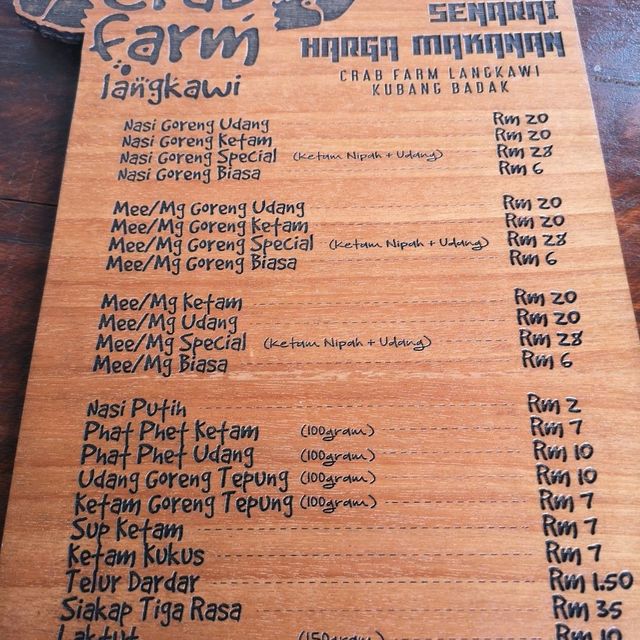 Crab
Farm
Langkawi
SENARAI
HARGA MAKANAN
CRAB FARM LANGKAWI
KUBANG BADAK
Nasi Goreng Udang Rm 20
Nasi Goreng Ketam Rm 20
Nasi Goreng Special (Ketam Nipah + Udang) Rm 28
Nasi Goreng Biasa Rm 6
Mee/Mg Goreng Udang Rm 20
Mee/Mg Goreng Ketam Rm 20
Mee/Mg Goreng Special (Ketam Nipah + Udang) Rm 28
Mee/Mg Goreng Biasa Rm 6
Mee/Mg Ketam Rm 20
Mee/Mg Udang Rm 20
Mee/Mg Special (Ketam Nipah + Udang) Rm 28
Mee/Mg Biasa Rm 6
Nasi Putih Rm 2
Phat Phet Ketam (100gram) Rm 7
Phat Phet Udang (100gram) Rm 10
Udang Goreng Tepung (100gram) Rm 10
Ketam Goreng Tepung (100gram) Rm 7
Sup Ketam Rm 7
Ketam Kukus Rm 7
Telur Dardar Rm 1.50
Siakap Tiga Rasa Rm 35
(150gram) Rm 10